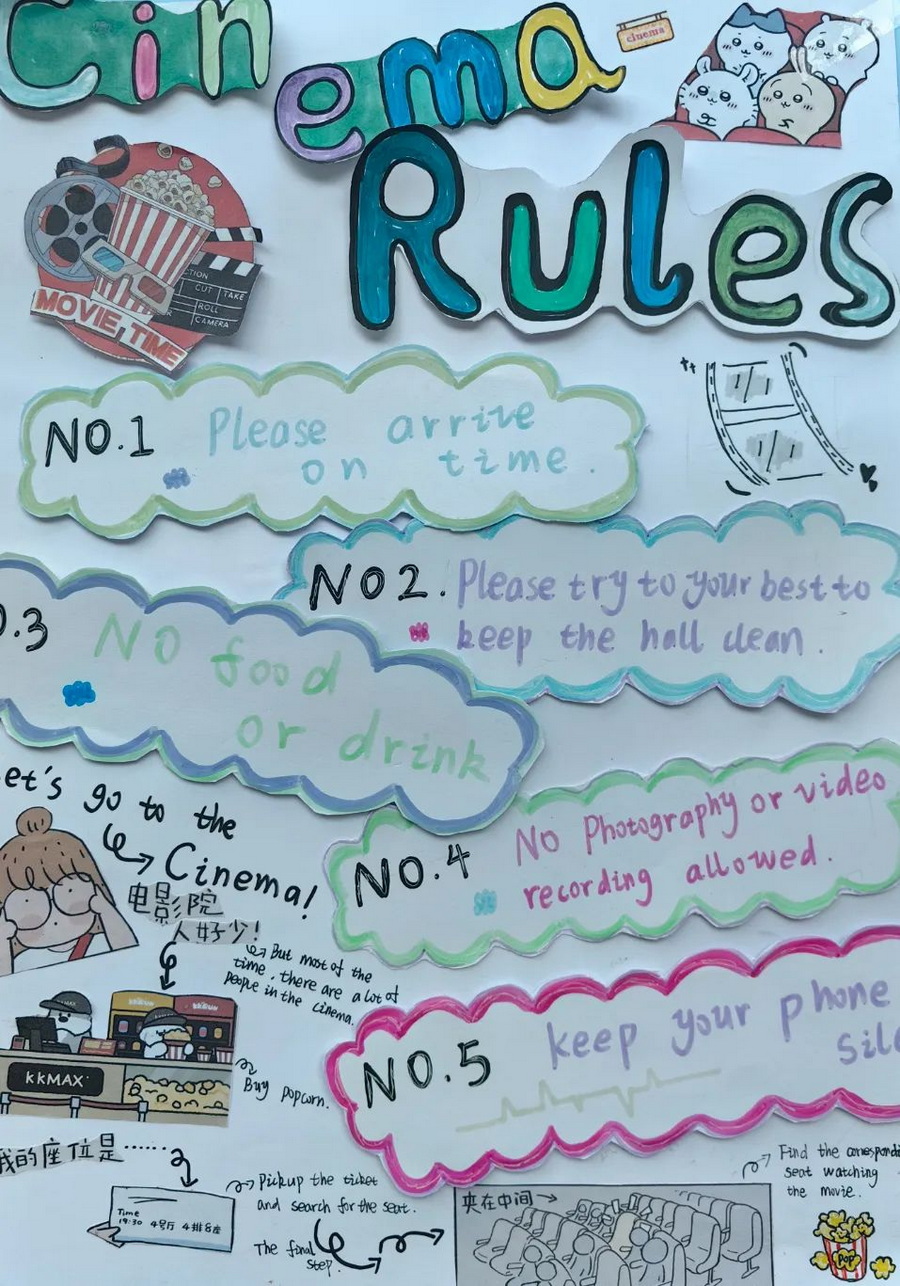 Cinema
cinema
Rules
MOVIE TIME
CUT TAKE
ROLL
CAMERA
NO.1 Please arrive
on time.
NO2. Please try to your best to
keep the hall clean.
.3 NO food
or drink
NO.4 No Photography or video
recording allowed.
NO.5 keep your phone
et's go to the
Cinema!
电影院
人好少!
But most of the
time, there are a lot of
people in the cinema.
KKMAX
Buy popcorn.
我的座位是……
Pickup the ticket
and search for the seat.
Time
19:30 4号厅 4排8座
The final
step.
夹在中间
Find the
seat watching
the movie.
POP